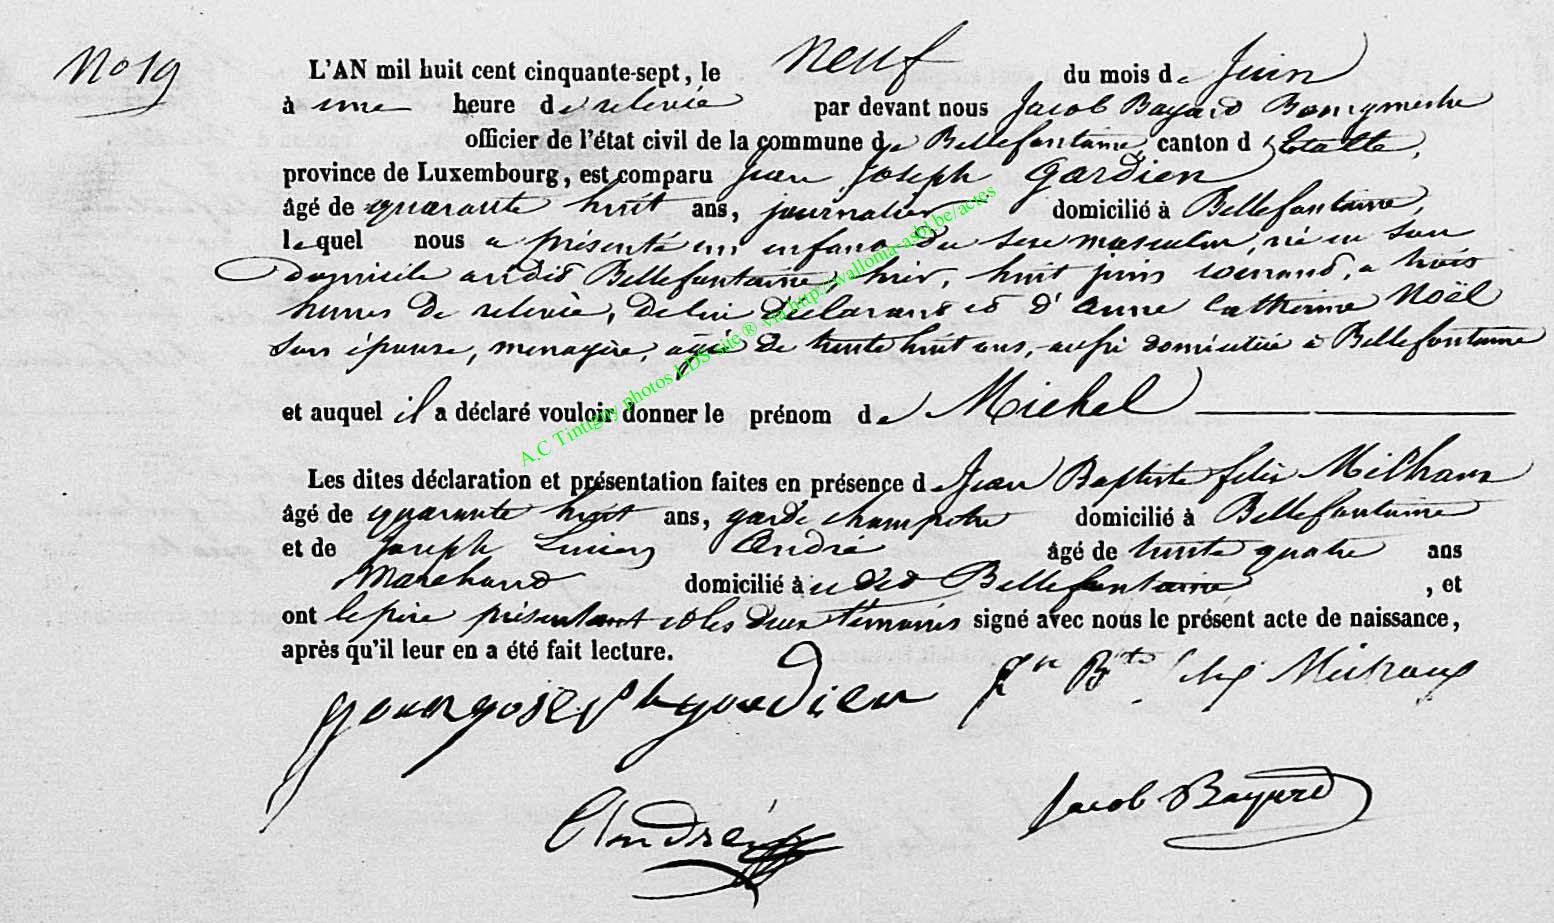 No 19
L'AN mil huit cent cinquante-sept, le neuf du mois de Juin
à une heure de relevée par devant nous Jacob Bayard Bourgmestre
officier de l'état civil de la commune de Bellefontaine, canton d'Etalle,
province de Luxembourg, est comparu Jean Joseph Gardien
âgé de quarante huit ans, journalier domicilié à Bellefontaine,
lequel nous a présenté un enfant du sexe masculin, né en son
domicile audit Bellefontaine, hier, huit juin courant, a trois
heures de relevée, de lui déclarant et d'Anne Catherine Noël
son épouse, menagère, agée de trente huit ans, aussi domiciliée a Bellefontaine
et auquel il a déclaré vouloir donner le prénom de Michel
Les dites déclaration et présentation faites en présence de Jean Baptiste felix
âgé de quarante huit ans, garde champetre domicilié à Bellefontaine
et de Joseph Lucien André âgé de trente quatre ans
Marchand domicilié à udit Bellefontaine, et
ont le père présentant et les deux témoins signé avec nous le présent acte de naissance,
après qu'il leur en a été fait lecture.
Jn Bte felix
André
Jacob Bayard
A.C Tintigny photos LDS site ® via http://wallonia-asbl.be/actes